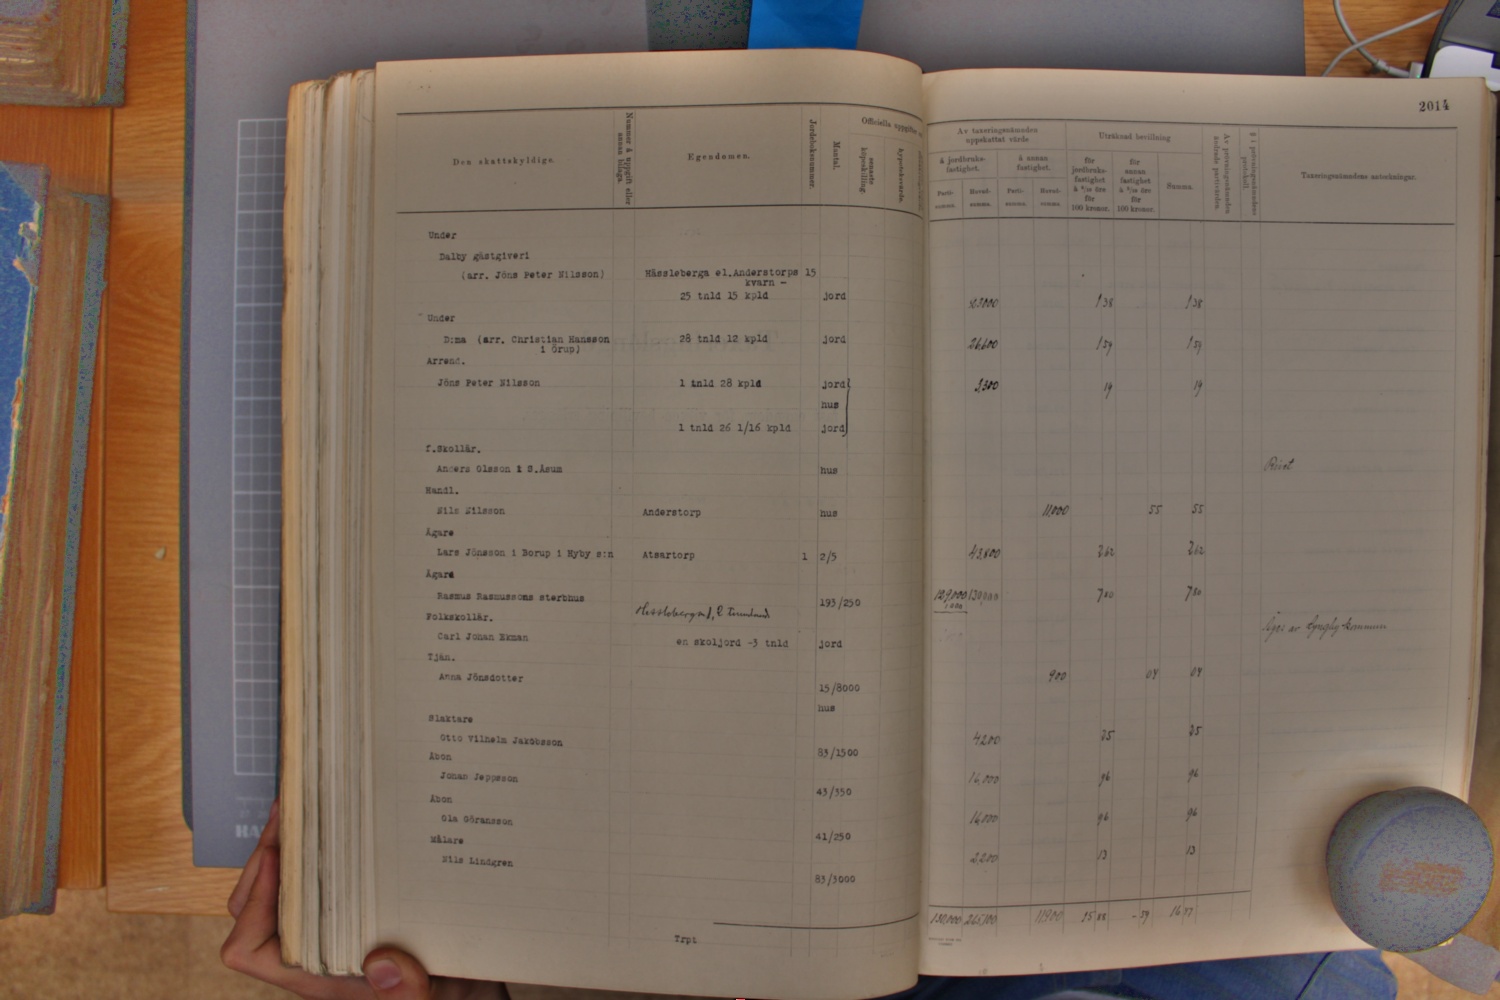 2014
Den skattskyldige.
Nummer å uppgift eller annan bilaga.
Egendomen.
Jordeboksnummer.
Mantal.
Officiella uppgifter
senaste köpeskilling.
hypoteksvärde.
Av taxeringsnämnden uppskattat värde
å jordbruksfastighet.
å annan fastighet.
Parti-summa.
Huvud-summa.
Parti-summa.
Huvud-summa.
Uträknad bevillning
för jordbruksfastighet å 6/10 öre för 100 kronor.
för annan fastighet å 5/10 öre för 100 kronor.
Summa.
Taxeringsnämndens anteckningar.
Under
Dalby gästgiveri
(arr. Jöns Peter Nilsson) Hässleberga el.Anderstorps 15
kvarn -
25 tnld 15 kpld jord 23000 1 38 1 38
Under
D:ma (arr. Christian Hansson 28 tnld 12 kpld jord 26,600 1 59 1 59
i Örup)
Arrend.
Jöns Peter Nilsson 1 tnld 28 kpld jord 3,300 19 19
hus
1 tnld 26 1/16 kpld jord
f.Skollär.
Anders Olsson i S.Åsum hus
Handl.
Nils Nilsson Anderstorp hus 11,000 55 55
Ägare
Lars Jönsson i Borup i Hyby s:n Atsartorp 1 2/5 43,800 2 62 2 62
Ägare
Rasmus Rasmussons sterbhus 193/250 129,000 130,000 7 80 7 80
1 000
Folkskollär.
Carl Johan Ekman en skoljord -3 tnld jord kommun
Tjän.
Anna Jönsdotter 15/8000 900 04 04
hus
Slaktare
Otto Vilhelm Jakobsson 83/1500 4200 25 25
Åbon
Johan Jeppsson 43/350 16,000 96 96
Åbon
Ola Göransson 41/250 16,000 96 96
Målare
Nils Lindgren 83/3000 2,200 13 13
130,000 265,100 11,900 15 88 - 59 16 47
Trpt